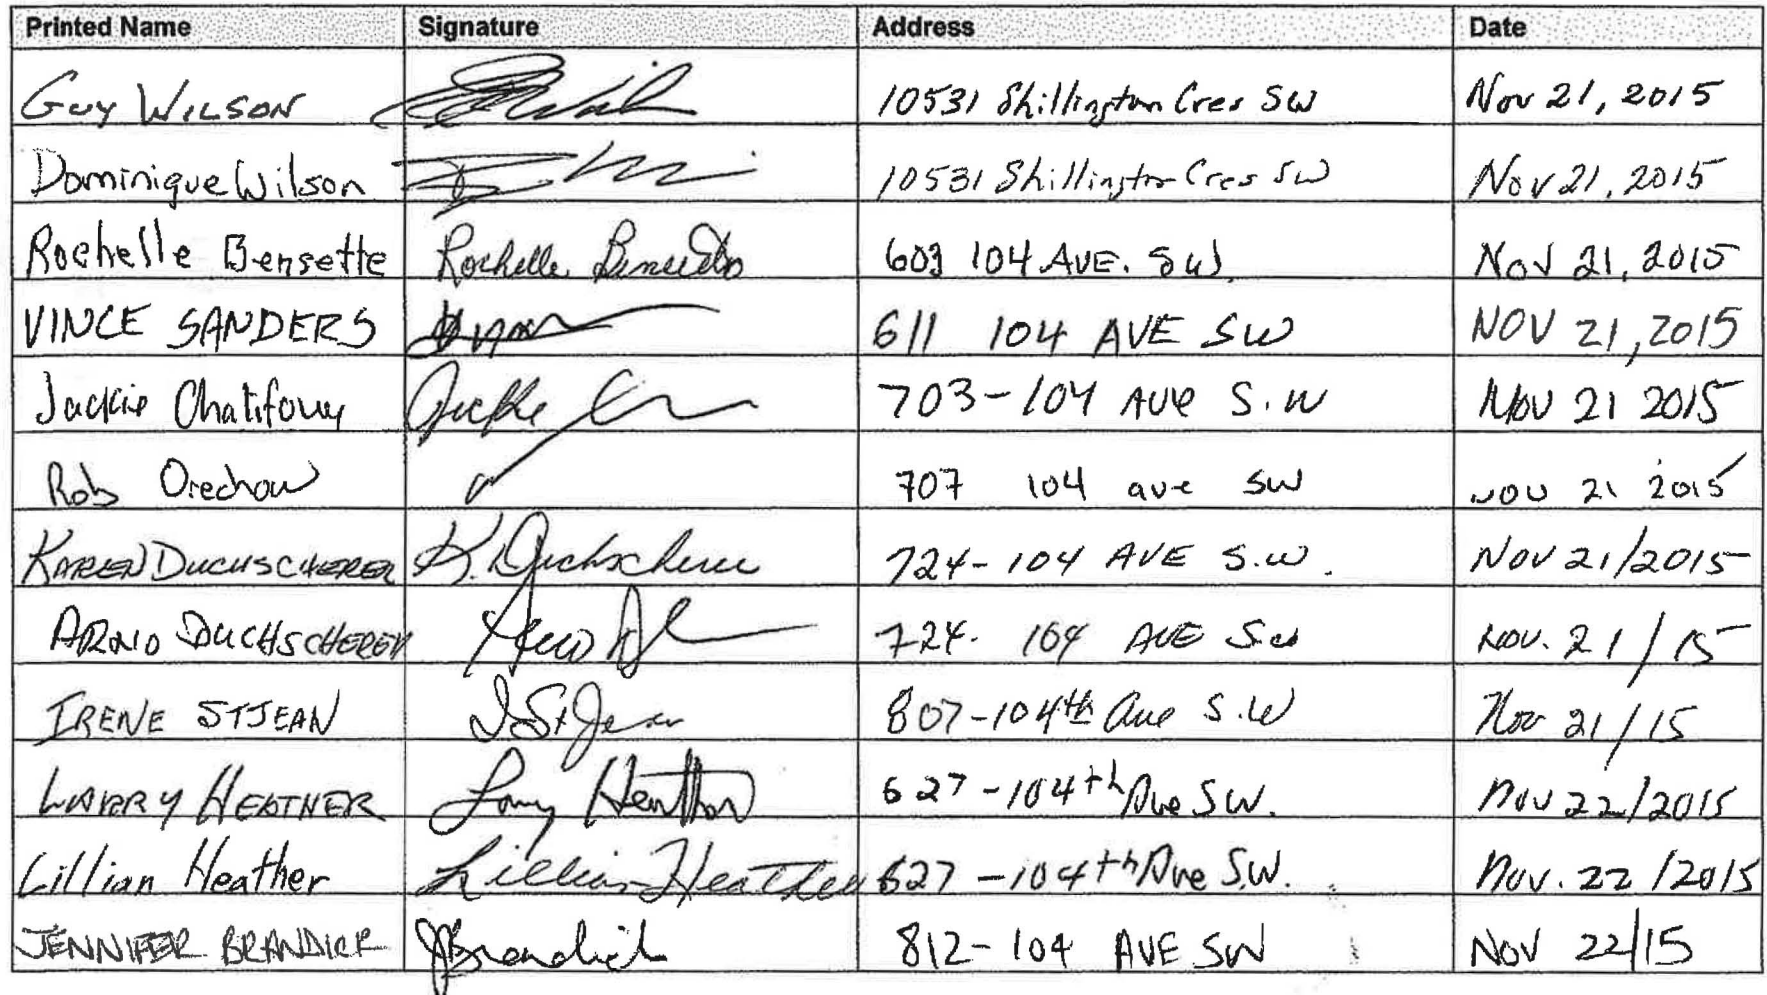 Printed Name Signature Address Date
GUY WILSON 10531 Shillington Cres SW Nov 21, 2015
Dominique Wilson 10531 Shillington Cres SW Nov 21, 2015
Rochelle Bensette Rochelle 603 104 AVE. SW. Nov 21, 2015
VINCE SANDERS 611 104 AVE SW NOV 21, 2015
Jackie 703-104 AVE S.W Nov 21 2015
Rob Orechow 707 104 ave SW NOV 21 2015
KAREN DUCHSCHERER K. Duchscherer 724-104 AVE S.W. Nov 21/2015
ARNO DUCHSCHERER 724. 104 AVE S.W Nov. 21/15
IRENE STJEAN I. St Jean 807-104th Ave S.W Nov 21/15
LARRY HEATHER Larry Heather 627-104th Ave SW. Nov 22/2015
Lillian Heather Lillian Heather 627-104th Ave S.W. Nov. 22/2015
JENNIFER BRANDICK JBrandick 812-104 AVE SW NOV 22/15